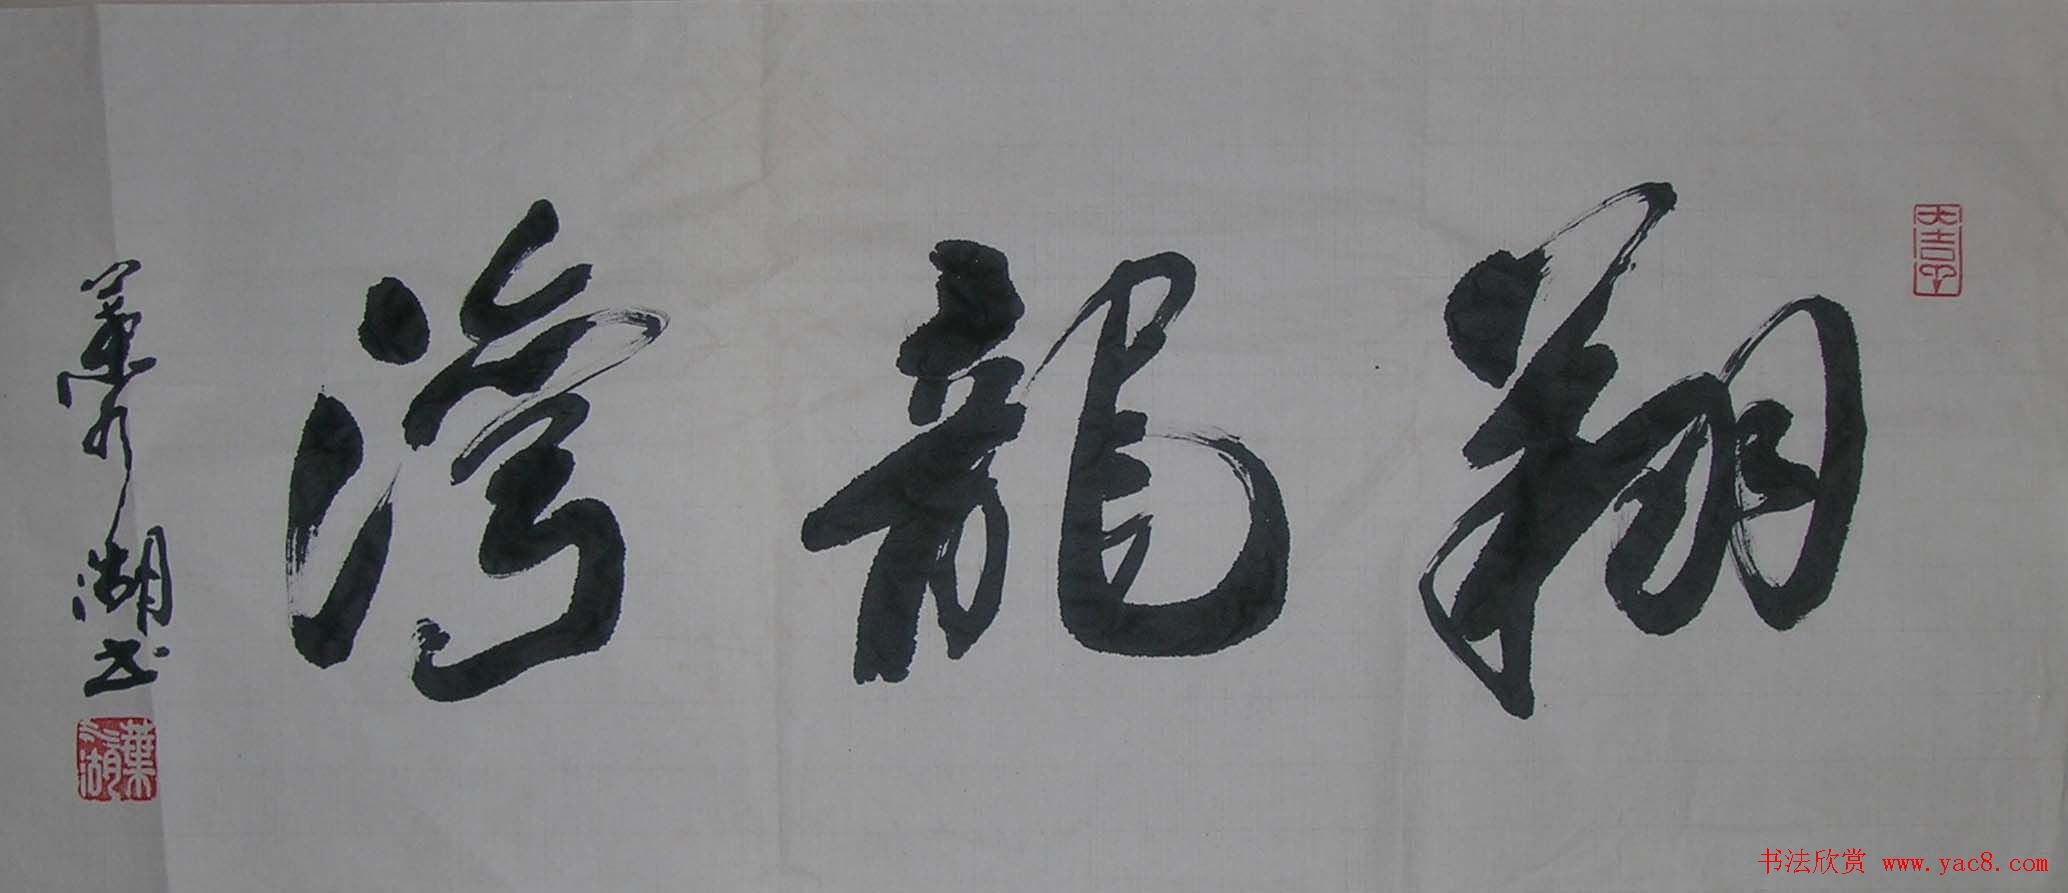 大吉羊
翔龍灣
葉湖书
葉湖
书法欣赏 www.yac8.com